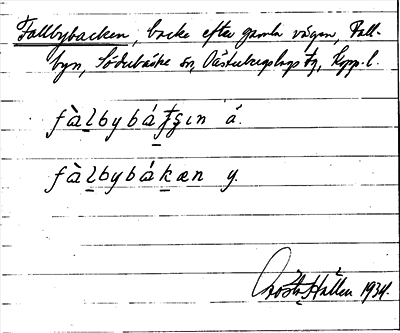 Fallbybacken, backe efter gamla vägen, Fall-
byn, Söderbärke sn, Västerbergslags tg, Kopp. l.
fàlbybá ın á.
fàlbybákæn y.
Gösta Hallén 1934.